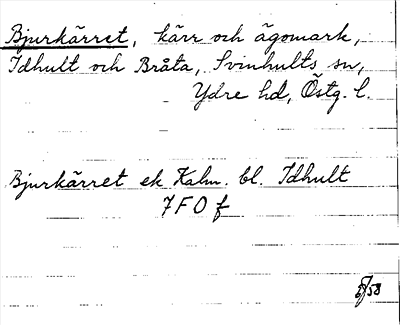 Bjurkärret, kärr och ägomark,
Idhult och Bråta, Svinhults sn,
Ydre hd, Östg. l.
Bjurkärret ek Kalm. bl. Idhult
7 F 0 f